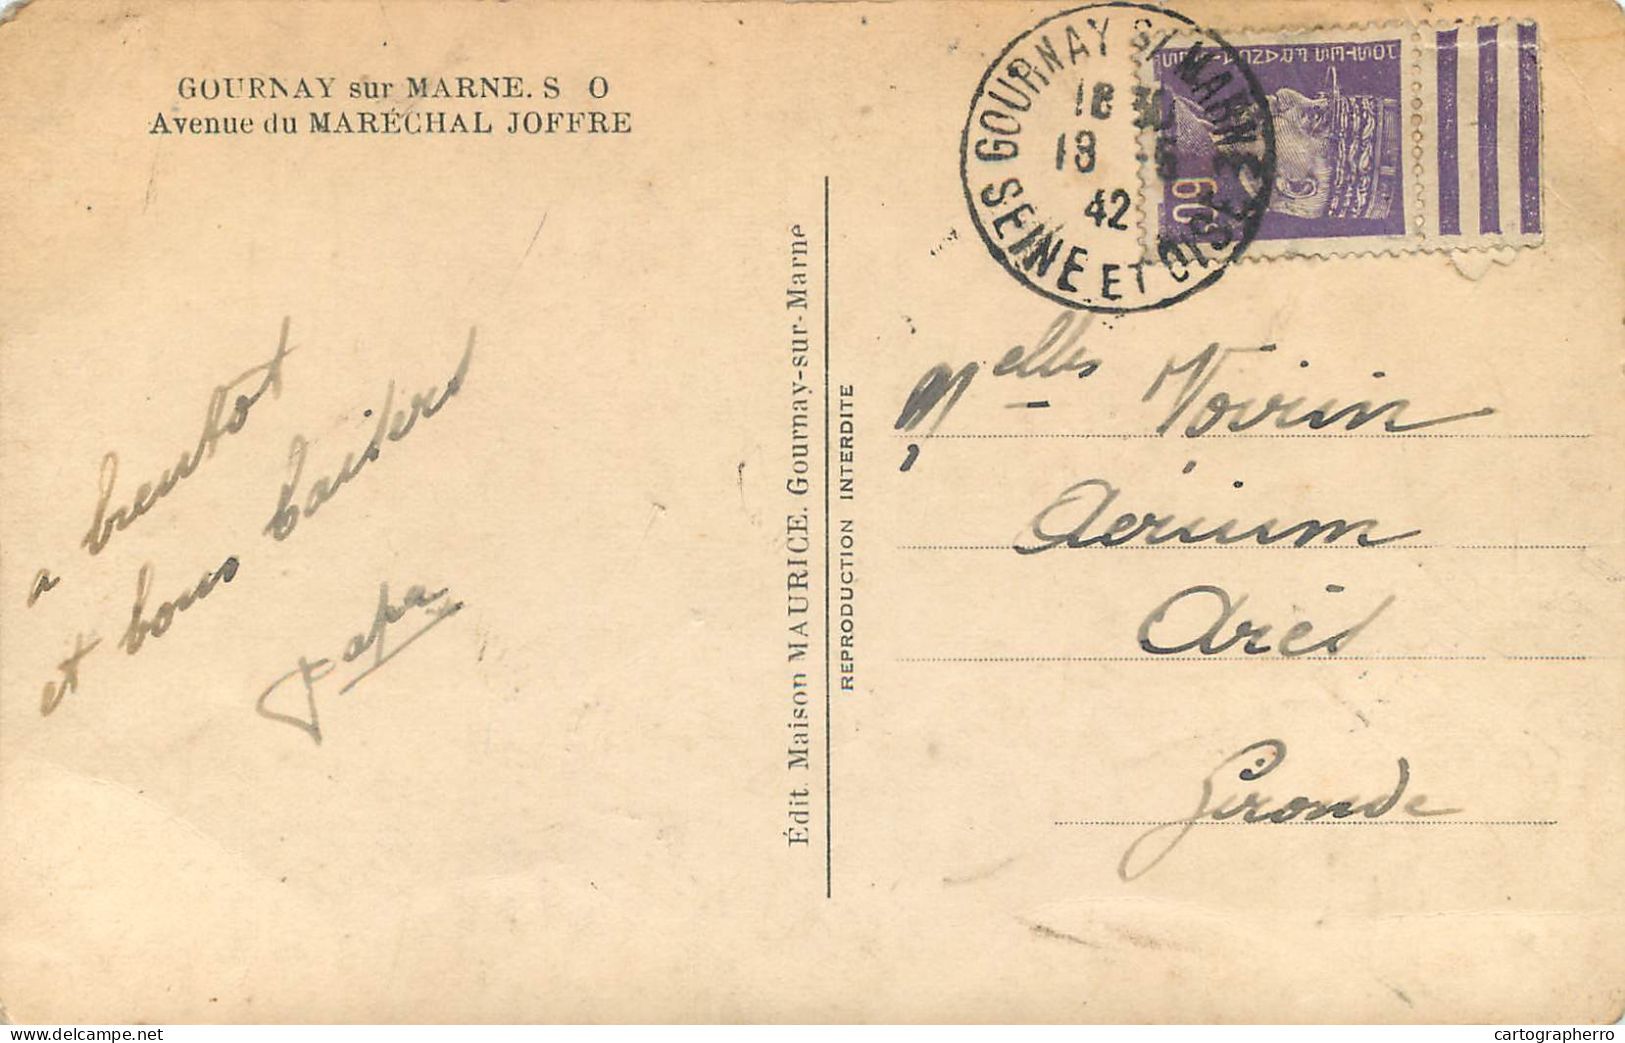 GOURNAY sur MARNE. S O
Avenue du MARÉCHAL JOFFRE
a bientot
et bons baisers
papa
Édit. Maison MAURICE. Gournay-sur-Marne
REPRODUCTION INTERDITE
GOURNAY S/ MARNE
18 30
18 -5
42
SEINE ET OISE
60c
POSTES FRANÇAISES
Melles Voirin
Aerium
Arès
Gironde
cartographerro